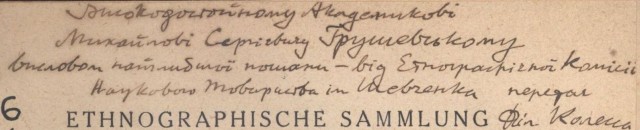 Високодостойному Академикові
Михайлові Сергієвичу Грушевському
висловом найглибшої пошани – від Етнографічної Комісії
Наукового Товариства ім Шевченка передав
6 ETHNOGRAPHISCHE SAMMLUNG Філ Колесса